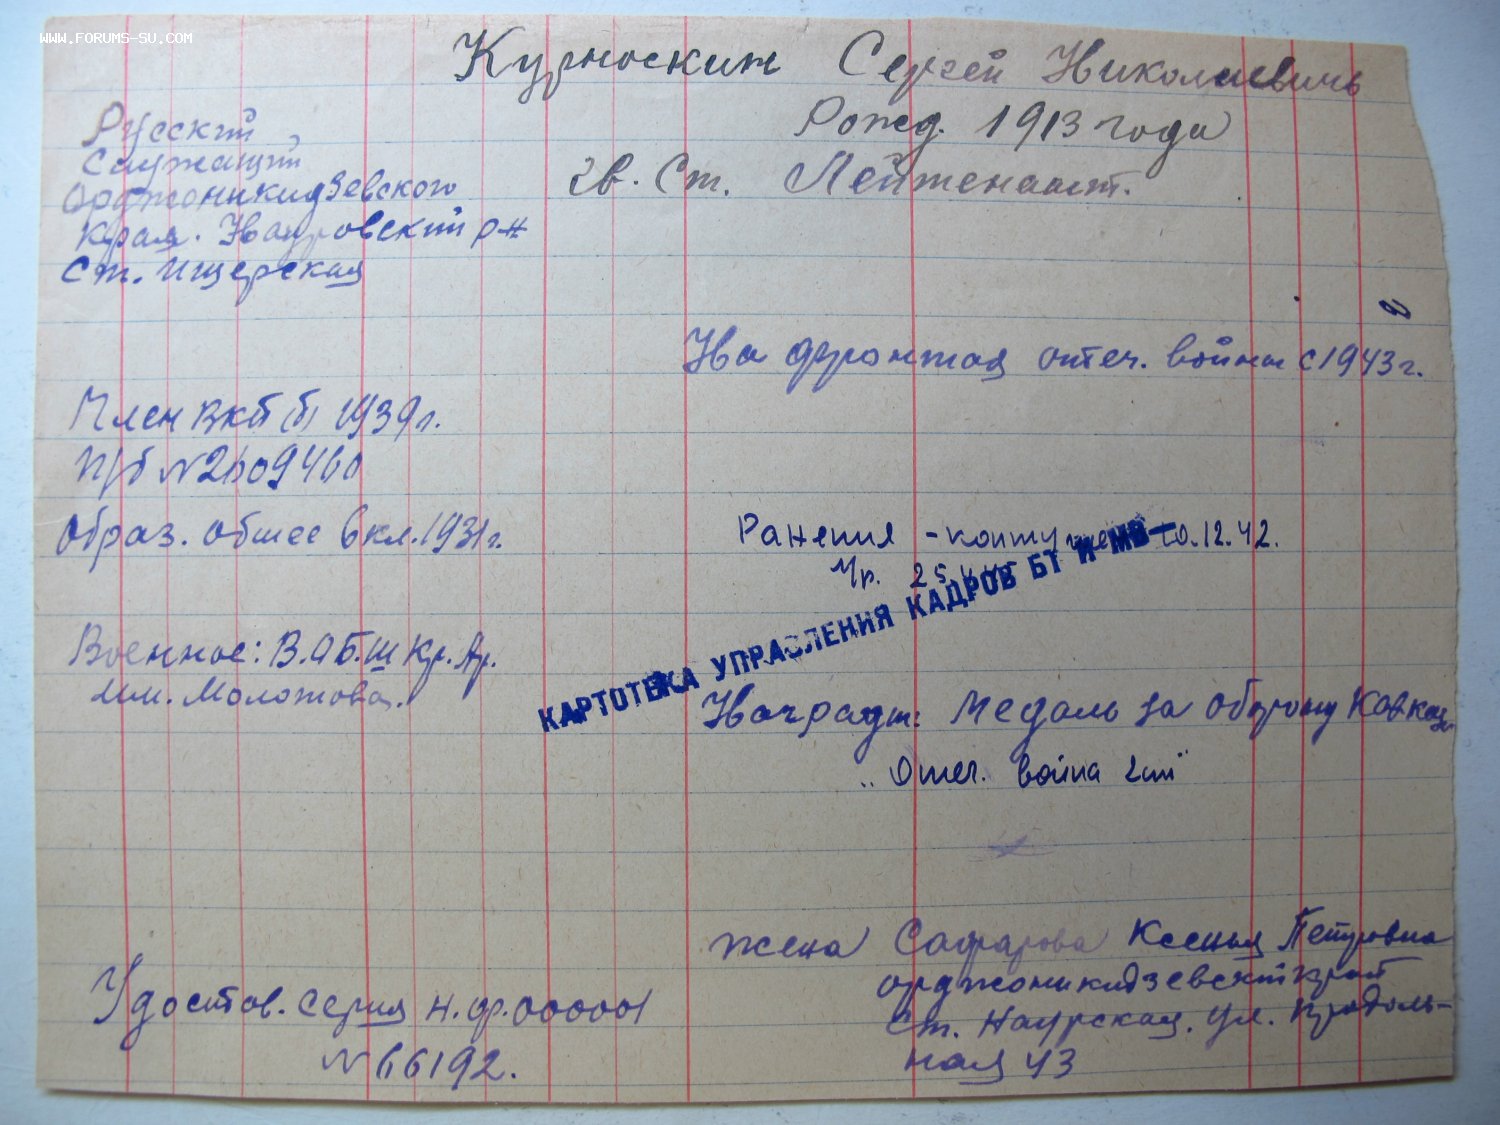 WWW.FORUMS-SU.COM
Курноскин Сергей Николаевичь
Рожд. 1913 года
гв. Ст. Лейтенант.
Русский
Служащий
Орджоникидзевского
края. Науровский р-н
ст. Ищерская
На фронтах отеч. войны с 1943 г.
Член ВКП(б) 1939 г.
П/б №2609460
Образ. общее 6 кл. 1931 г.
Ранения - 20.12.42.
КАРТОТЕКА УПРАВЛЕНИЯ КАДРОВ БТ И МВ
Военное: В.А Б.Ш Кр. Ар.
им. Молотова.
Награды: Медаль за Оборону Кавказа
„Отеч. война 2 ст"
жена Сафарова Ксения Петровна
орджоникидзевский край
ст. Наурская. ул. Продоль-
ная 43
Удостов. серия Н.ф. 000001
№66192.